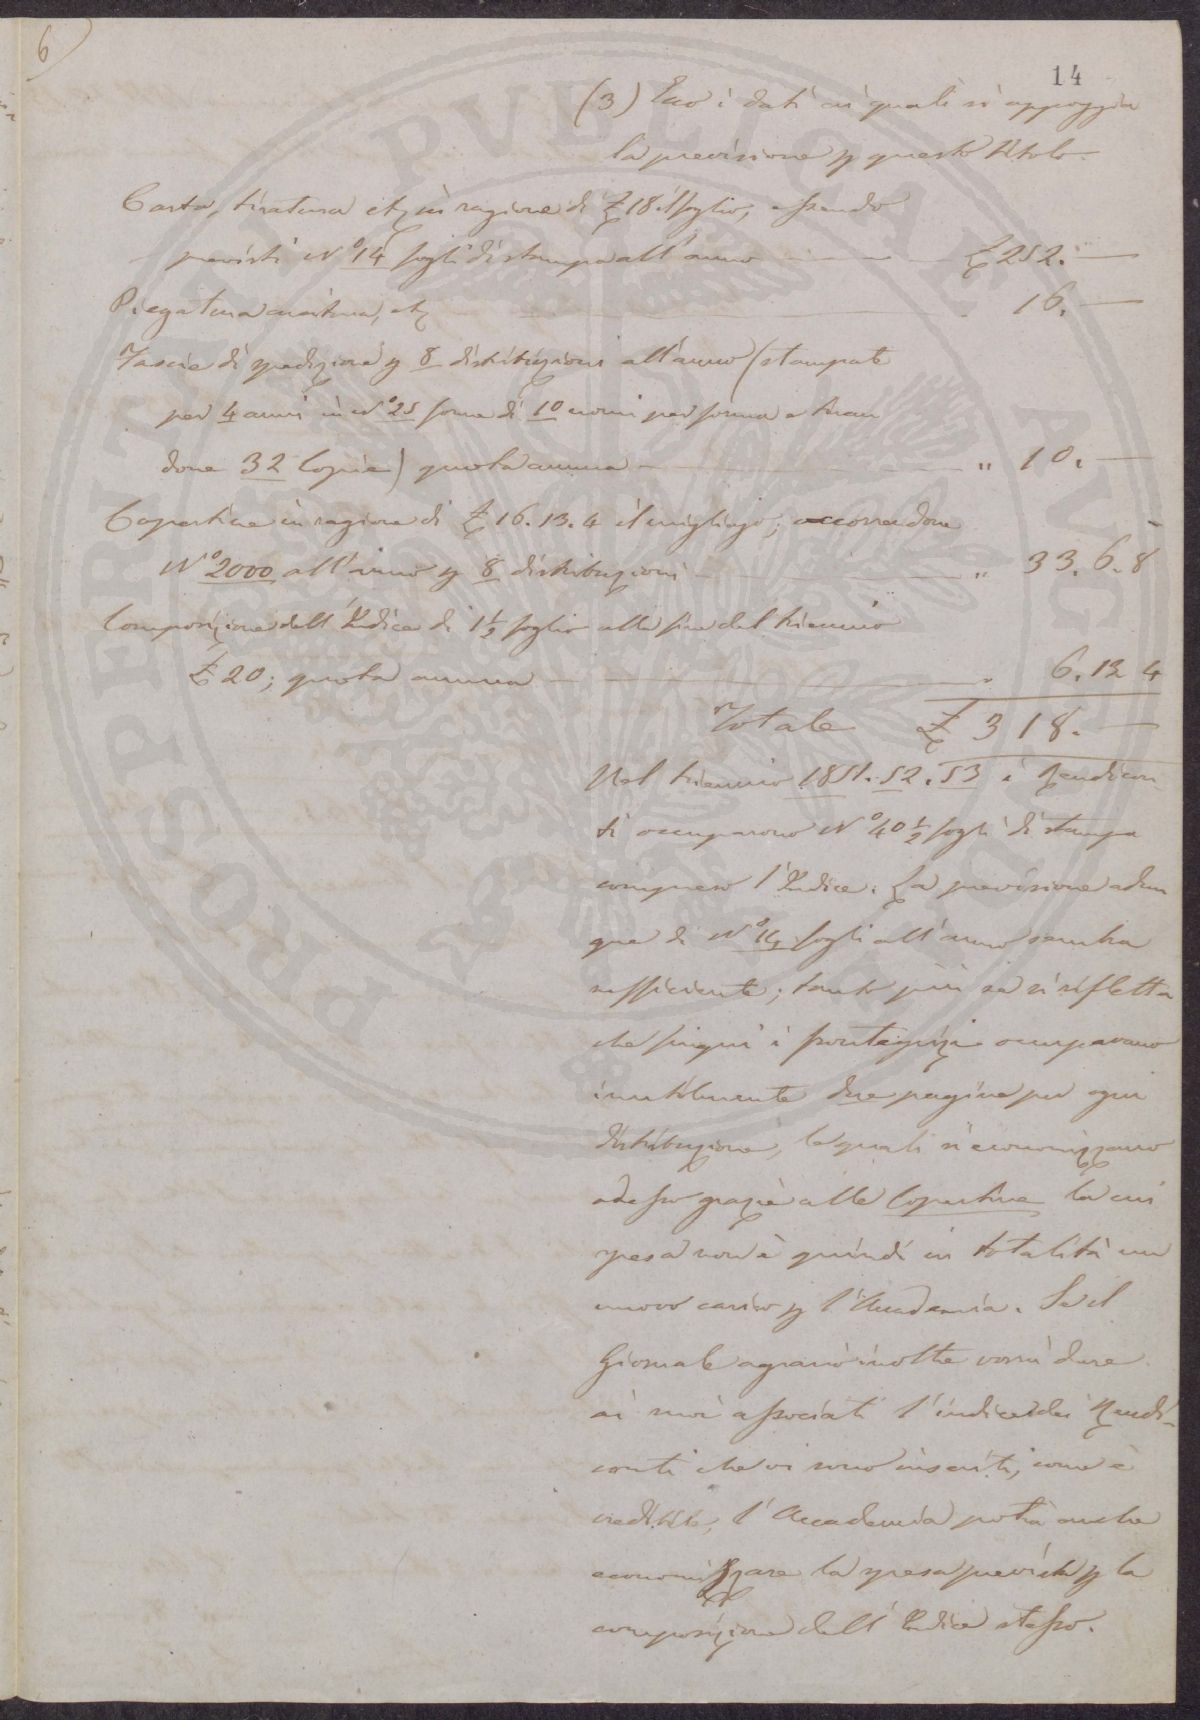 6
14
(3) Ecco i dati sui quali si appoggia
la previsione p questo titolo.
Carta, tiratura etz in ragione di £ 18 il foglio, essendo
previsti N° 14 fogli di stampa all'anno £ 252. —
Piegatura cucitura, etz 16. —
Fascie di spedizione p 8 distribuzioni all'anno (stampate
per 4 anni in N° 25 forme di 10 nomi per forma e tiran
done 32 Copie) quota annua — " 10. —
Copertine in ragione di £ 16.13.4 il migliajo; occorrendone
N° 2000 all'anno p 8 distribuzioni — " 33. 6. 8
Composizione dell'Indice di 1 1/2 foglio alla fine del triennio
£ 20; quota annua — " 6. 13 4
Totale £ 318. —
Nel triennio 1851. 52. 53 i Rendicon
ti occuparono N° 40 1/2 fogli di stampa
compreso l'Indice. La previsione adun
que di N° 14 fogli all'anno sembra
sufficiente; tanto più se si rifletta
che finqui i frontespizi occupavano
inutilmente due pagine per ogni
distribuzione, le quali si economizzano
adesso grazie alle Copertine la cui
spesa non è quindi in totalità un
nuovo carico p l'Accademia. Se il
Giornale agrario inoltre vorrà dare
ai suoi associati l'indice dei Rendi-
conti che vi sono inseriti, come è
credibile, l'Accademia potrà anche
economizzare la spesa prevista p la
composizione dell'Indice stesso.
PROSPERITATI PVBLICAE AVGENDAE